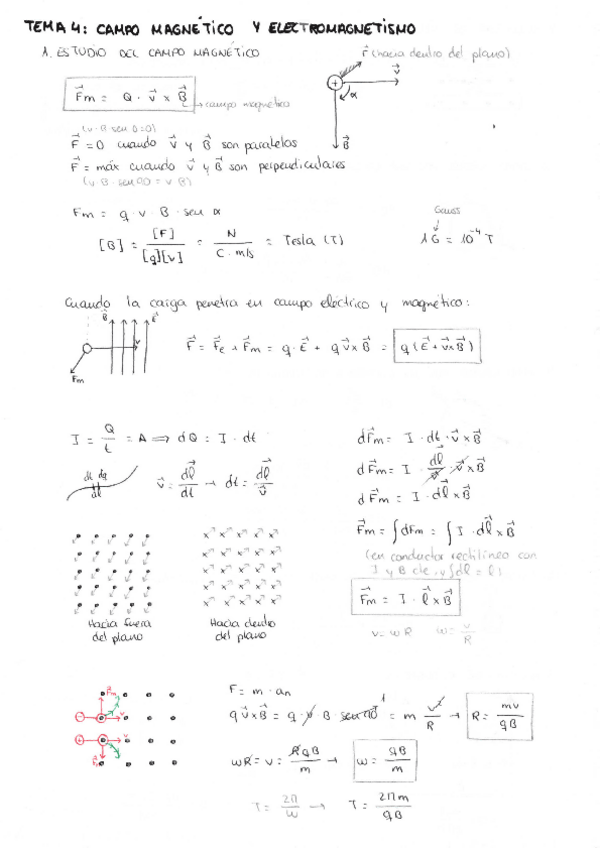 TEMA 4: CAMPO MAGNÉTICO Y ELECTROMAGNETISMO
1. ESTUDIO DEL CAMPO MAGNÉTICO
r⃗ (hacia dentro del plano)
v⃗
F⃗m = Q · v⃗ x B⃗
campo magnético
α
B⃗
(v · B · sen 0 = 0)
F⃗ = 0 cuando v⃗ y B⃗ son paralelas
F⃗ = máx cuando v⃗ y B⃗ son perpendiculares
(v · B · sen 90 = v B)
Fm = q · v · B · sen α
Gauss
[B] = [F] / [q][v] = N / C · m/s = Tesla (T)
1 G = 10⁻⁴ T
Cuando la carga penetra en campo eléctrico y magnético:
B⃗ E⃗
v
Fm
F⃗ = F⃗e + F⃗m = q · E⃗ + q v⃗ x B⃗ = q (E⃗ + v⃗ x B⃗)
I = Q / t = A ⟹ dQ = I · dt
dl dq
dl
v⃗ = dl⃗ / dt → dt = dl⃗ / v⃗
dF⃗m = I · dt · v⃗ x B⃗
dF⃗m = I · dl⃗ / v⃗ · v⃗ x B⃗
dF⃗m = I · dl⃗ x B⃗
F⃗m = ∫ dFm = ∫ I · dl⃗ x B⃗
(en conductor rectilíneo con
I y B cte. y ∫dl = l)
F⃗m = I · l⃗ x B⃗
Hacia fuera
del plano
Hacia dentro
del plano
v = wR w = v / R
F⃗m
v
v
F = m · an
q v⃗ x B⃗ = q · v · B sen 90 1 = m v² / R → R = mv / qB
wR = v = RqB / m → w = qB / m
T = 2π / w → T = 2πm / qB